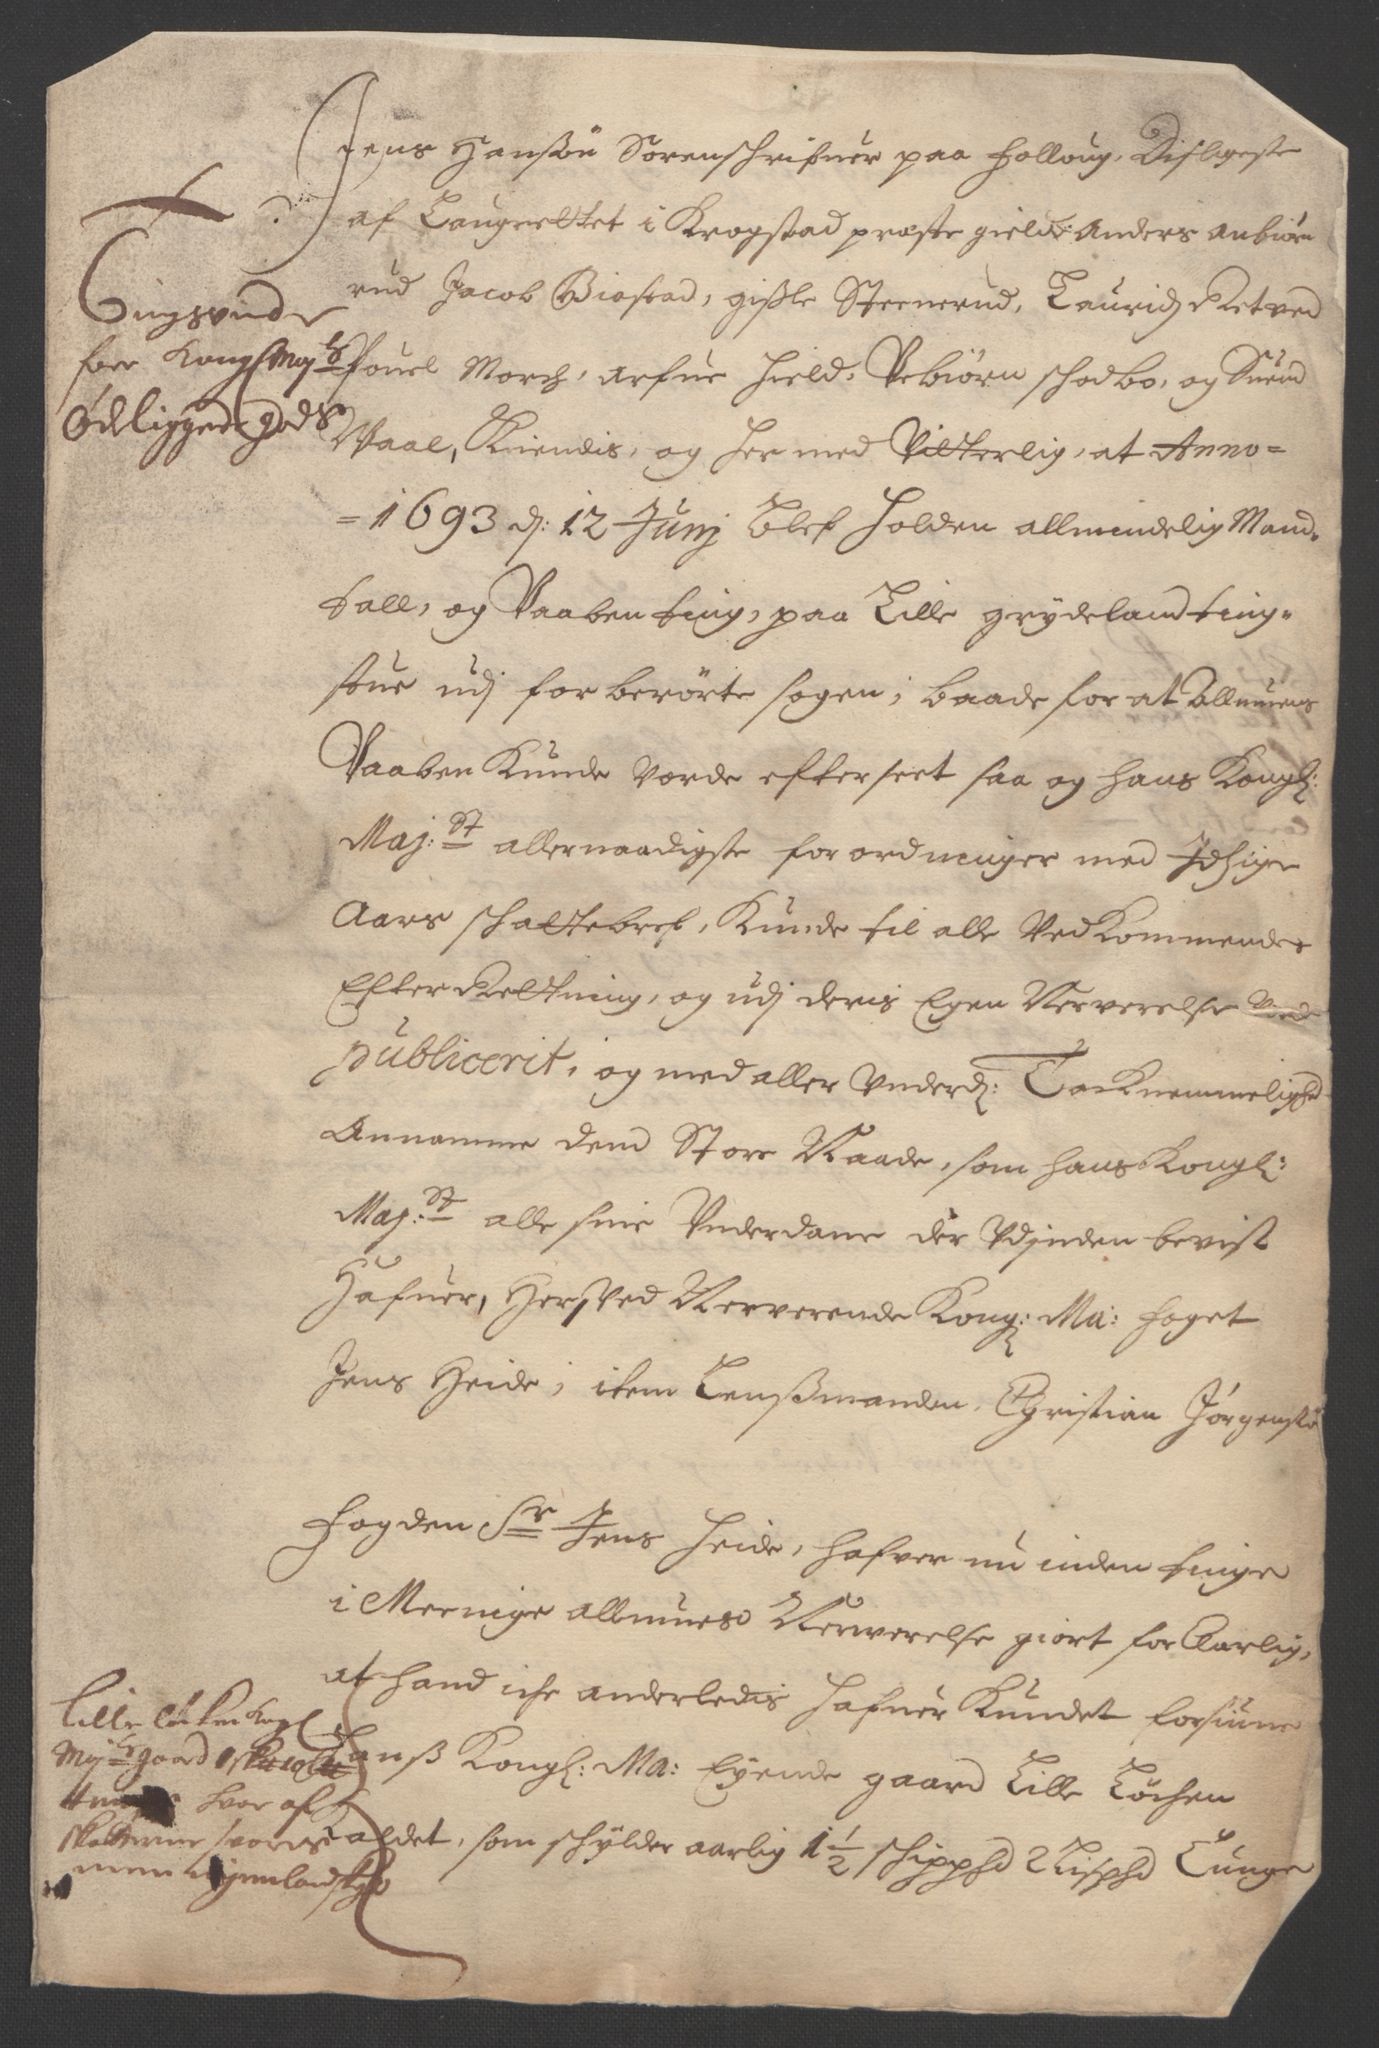 Jens Hanßön Sorenschrifuer paa Folloug, Disligeste
af Laugrettet i Krogstad præste gield: Anders Anbiörn
rud Jacob Biastad, gißle Steenerud, Lauridz Retved
Pouel Morch, Arfue Field, Vebiörn schodbo, og Suend
Waal, Kiendis, og her med Vitterlig, at Anno-
=1693 d: 12 Junj Blef holden allmindelig Mand-
tall, og Vaaben ting, paa Lille grydeland ting-
stue udj for berörte sogen, baade for at Allmuens
Vaaben Kunde vorde efterseet saa og hans Kongl:
Maj:st allernaadigste forordninger med Idzige
Aars schattebref, Kunde til alle Vedkommendes
Efter Rettning, og udj deris Egen Nerverelse vorde
publicerit, og med aller Underd: Tacknemmelighd
Annamme dend Store Naade, som hans Kongl:
Maj:st alle sine Underdane der Udjnden bevist
Hafuer, Her Ved Nerverende Kong: Ma: foget
Jens Heide, item Lenßmanden, Christian Jörgensön
Fogden Sr Jens Heide, hafver nu inden tinge
i Meenige allmues Nerverelse giort for Klarlig,
at hand iche anderledis hafuer Kundet forsiune
Hanß Kongl: Ma: Eyende gaard Lille Löchen
Kaldet, som schylder aarlig 1 1/2 schippd 2 Lispd Tunge
Tingsvinde
for Kongl Maj:ts
Ödeliggende gods
Lille löchen Kongl
Maj:ts gaard
hvor af
skatterne svares
men ingen landskyld